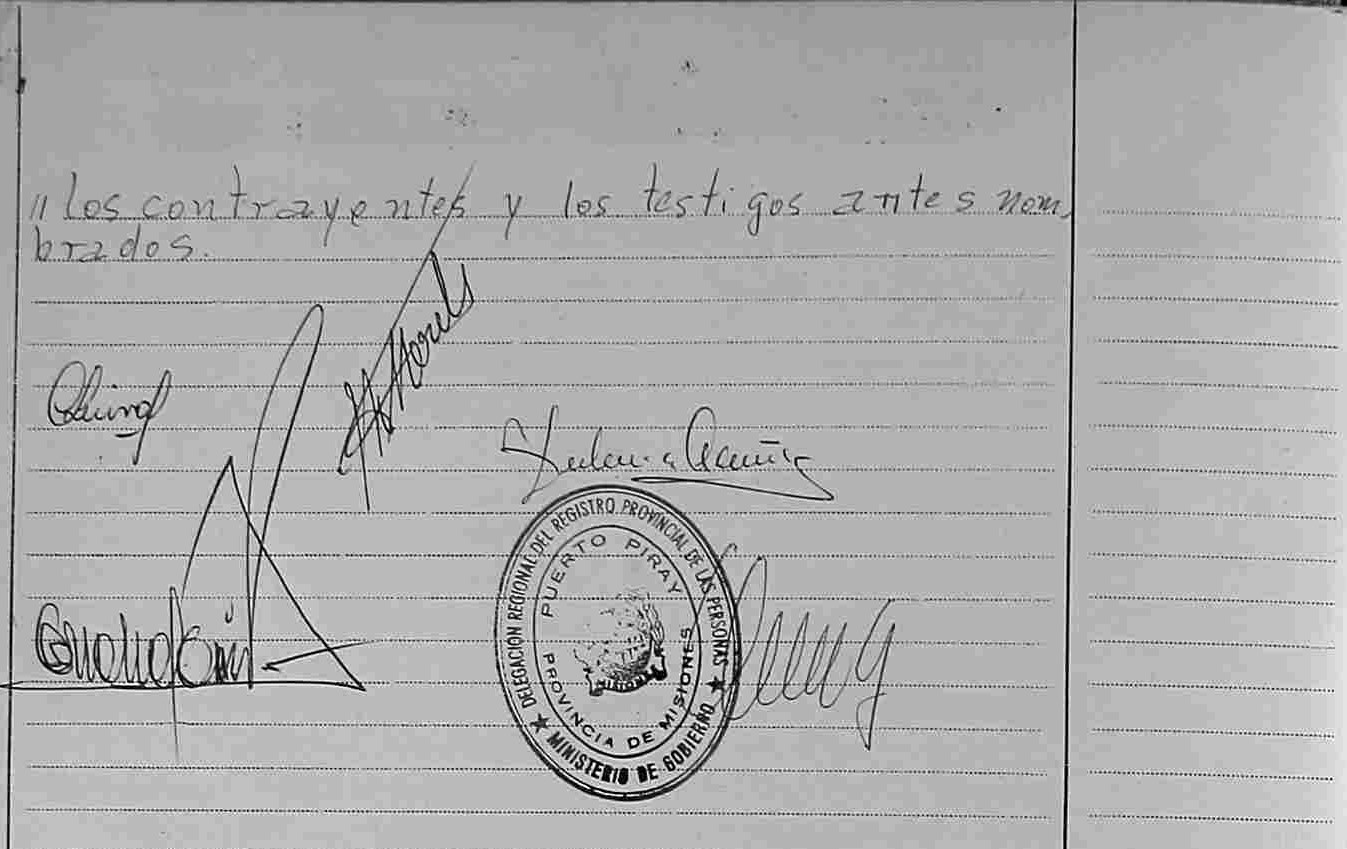 " los contrayentes y los testigos antes nom
brados.
DELEGACION REGIONAL DEL REGISTRO PROVINCIAL DE LAS PERSONAS
PUERTO PIRAY
PROVINCIA DE MISIONES
★ MINISTERIO DE GOBIERNO ★